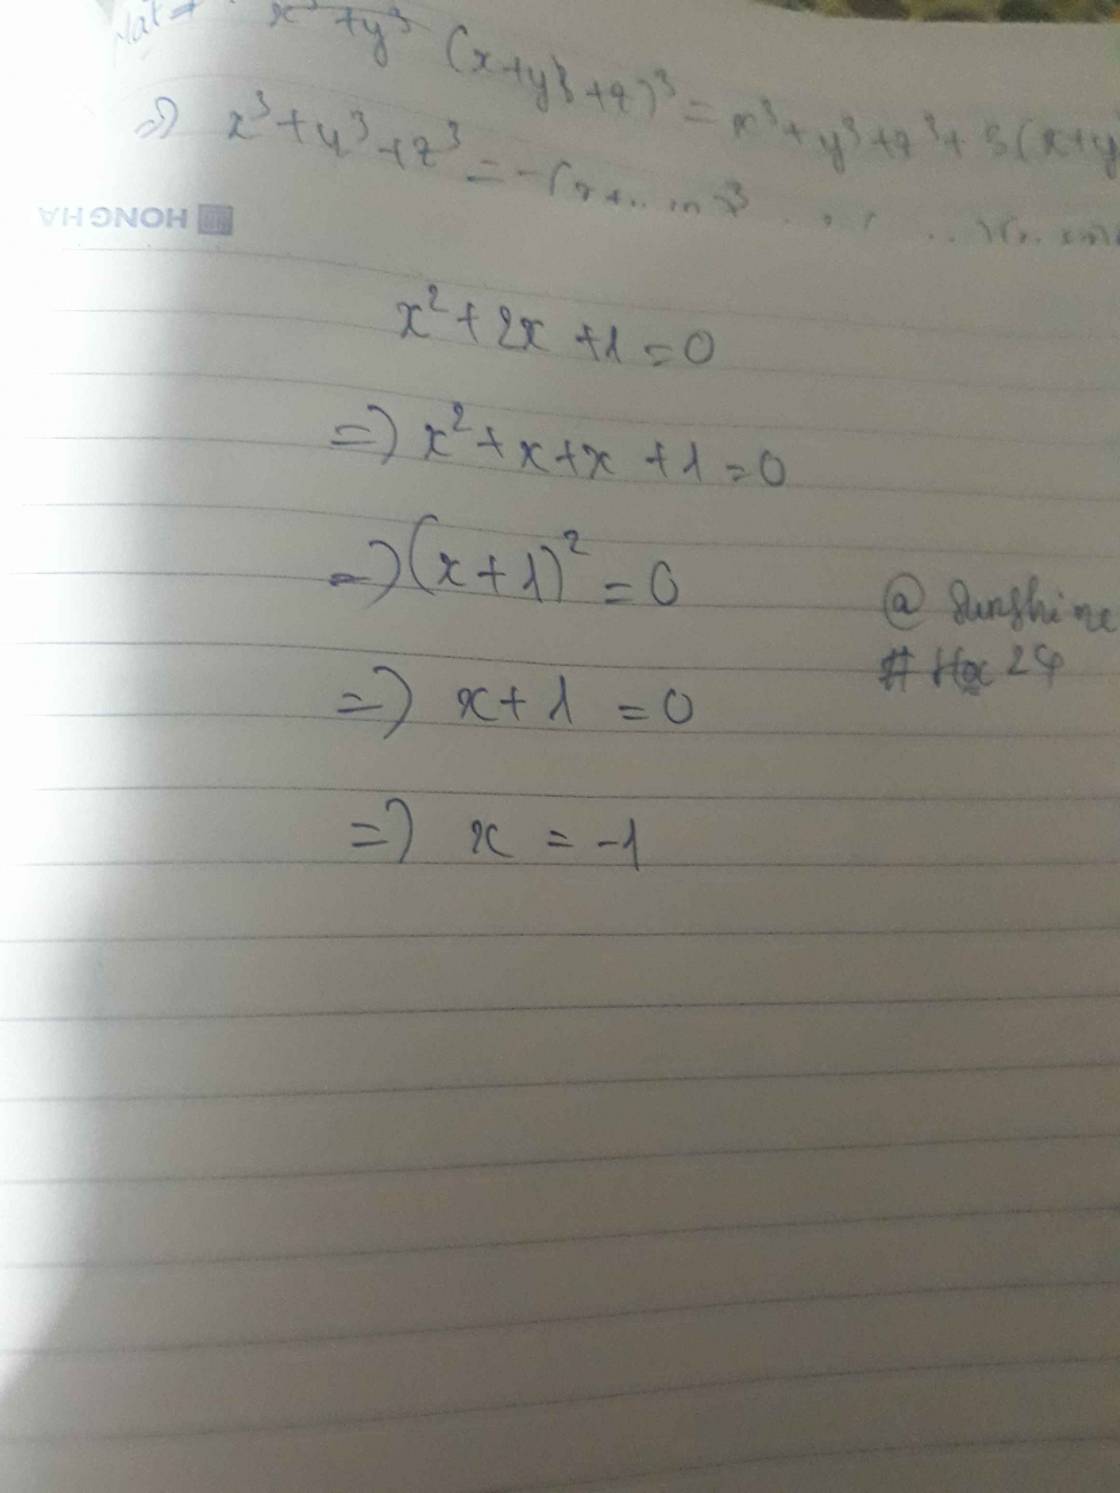 x³ + y³ (x+y+z)³ = x³+y³+z³+3(x+y
=) x³+y³+z³ = -(x+
HONG HA
x² + 2x + 1 = 0
=) x² + x + x + 1 = 0
=) (x+1)² = 0
@ Sunshine
# Hoc 24
=) x + 1 = 0
=) x = -1